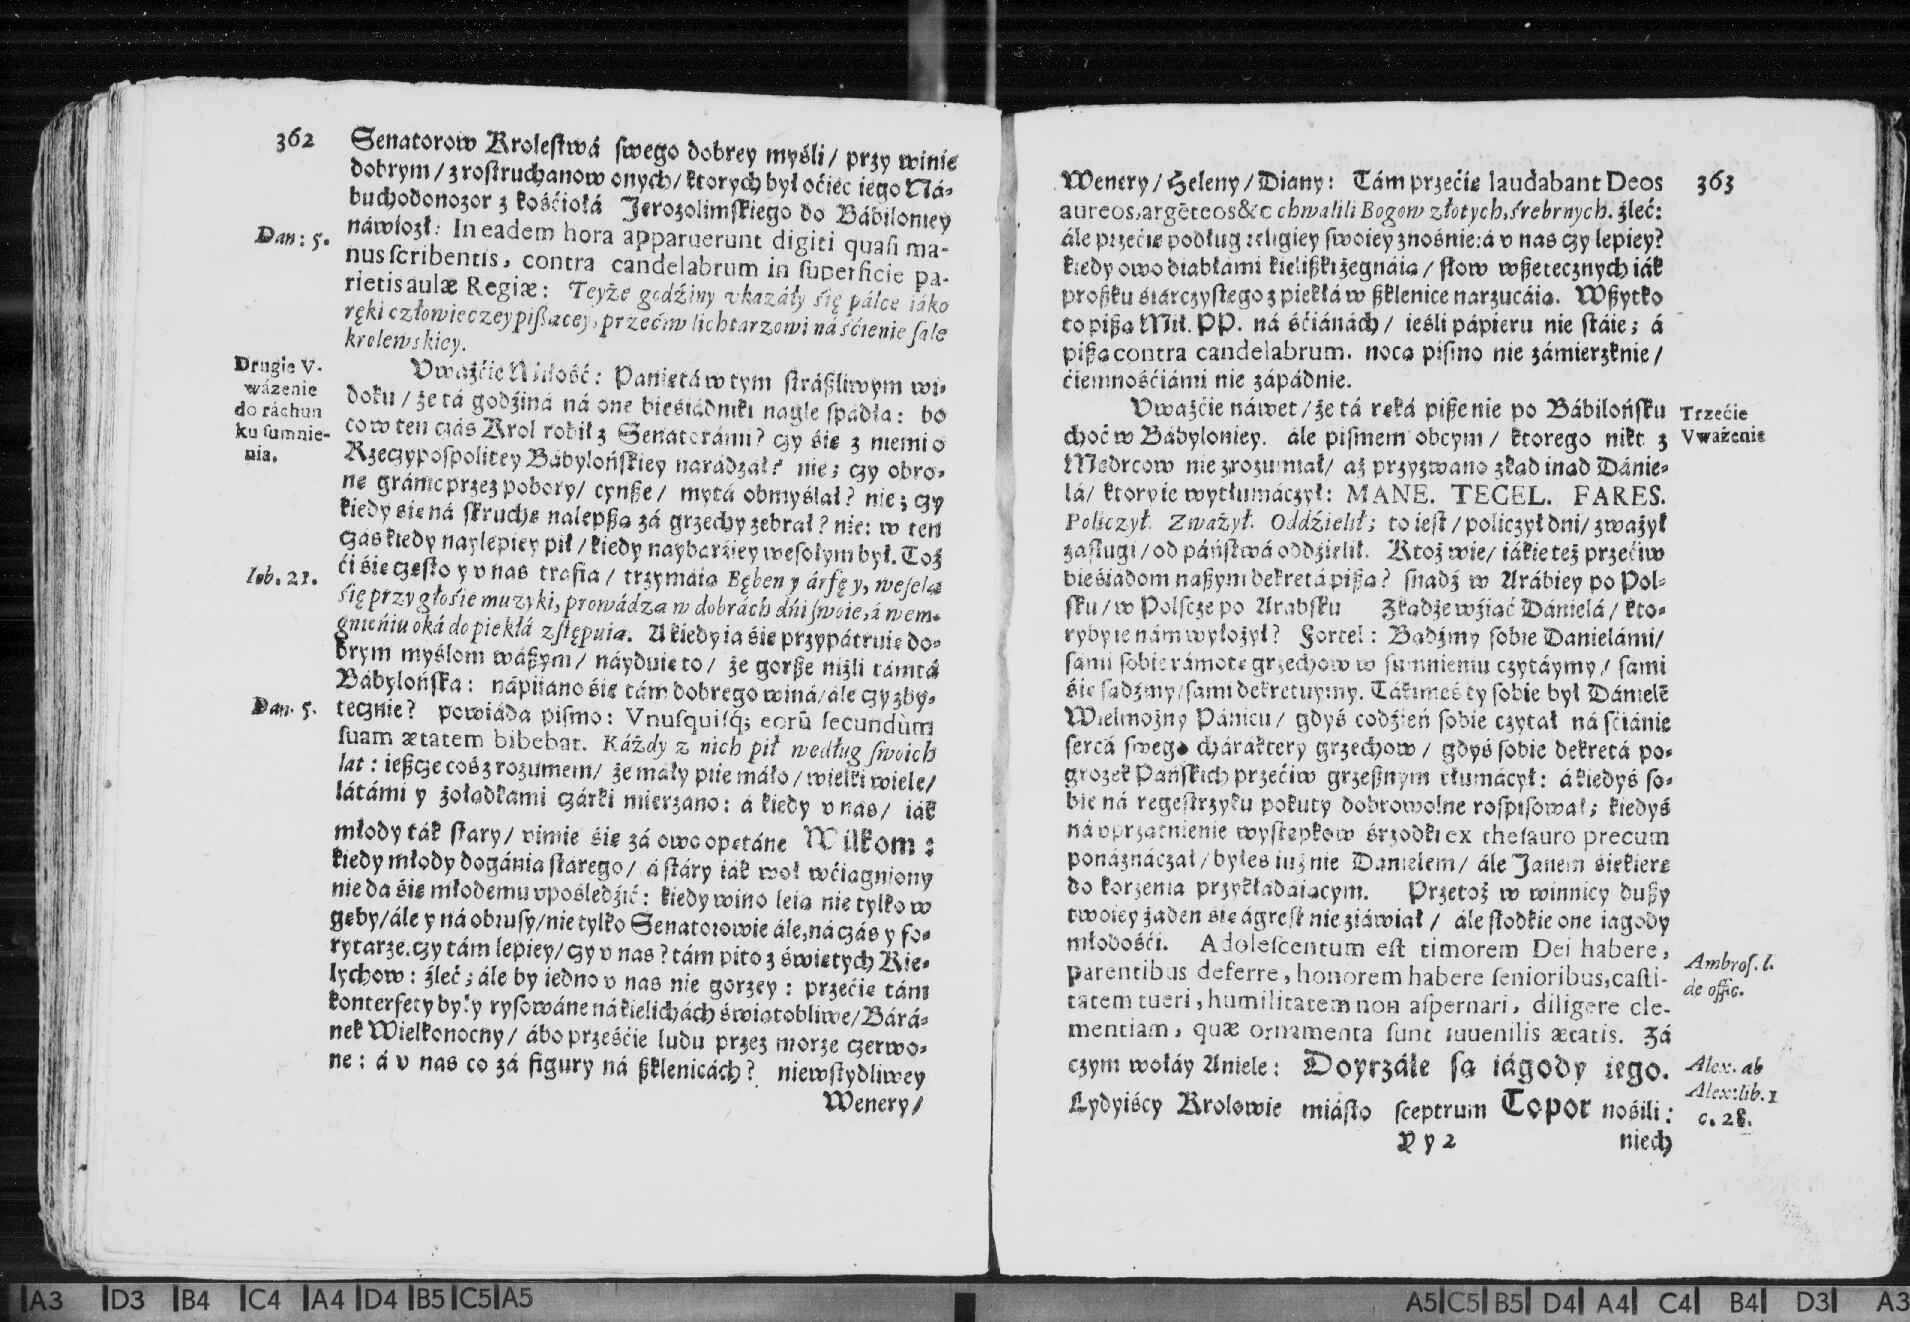 362
Senatorow Krolestwá swego dobrey myśli / przy winie
dobrym / z rostruchanow onych / ktorych był oćiec iego Ná-
buchodonozor z kośćiołá Jerozolimskiego do Bábiloniey
náwiozł: In eadem hora apparuerunt digiti quasi ma-
Dan: 5.
nus scribentis, contra candelabrum in superficie pa-
rietis aulæ Regiæ: Teyże godźiny vkazáły się pálce iáko
ręki człowieczey pißącey, przećiw lichtarzowi ná śćienie sale
krolewskiey.
Drugie V-
wáżenie
do ráchun
ku sumnie-
nia.
Vważćie Miłość: Paniętá w tym stráßliwym wi-
doku / że tá godźiná ná one bieśiádniki nagle spádła: bo
co w ten czás Krol robił z Senatorámi? czy się z niemi o
Rzeczypospolitey Bábylońskiey narádzał? nie; czy obro-
nę gránic przez pobory / cynße / mytá obmyślał? nie; czy
kiedy się ná skruchę nalepßą zá grzechy zebrał? nie: w ten
czás kiedy naylepiey pił / kiedy naybárźiey wesołym był. Toż
ći się często y v nas trafia / trzymáią Bęben y árfę y, weselą
Iob. 21.
się przy głośie muzyki, prowádzą w dobrách dńi swoie, á w em-
gnieńiu oká do piekłá zstępuią. A kiedy ia się przypátruię do-
brym myślom wáßym / náyduię to / że gorße niżli támtá
Bábylońska: nápiiano się tám dobrego winá / ále czy zby-
Dan. 5.
tecznie? powiáda pismo: Vnusquisq; eorũ secundùm
suam ætatem bibebat. Káżdy z nich pił według swoich
lat: ießcze coś z rozumem / że mały piie máło / wielki wiele /
látámi y żołądkami czárki mierzano: á kiedy v nas / iák
młody ták stary / vimie się zá owo opętáne Wilkom:
kiedy młody dogánia starego / á stáry iák woł wćiągniony
nie da się młodemu vpośledźić: kiedy wino leią nie tylko w
gęby / ále y ná obrusy / nie tylko Senatorowie ále, ná czás y fo-
rytarze. czy tám lepiey / czy v nas? tám pito z świętych Kie-
lychow: źleć; ále by iedno v nas nie gorzey: przećię tám
konterfety były rysowáne ná kielichách świątobliwe / Bárá-
nek Wielkonocny / ábo prześćie ludu przez morze czerwo-
ne: á v nas co zá figury ná ßklenicách? niewstydliwey
Wenery /
363
Wenery / Heleny / Diany: Tám przećię laudabant Deos
aureos, argẽteos &c chwalili Bogow złotych, śrebrnych. źleć:
ále przećię podług religiey swoiey znośnie: á v nas czy lepiey?
kiedy owo diabłámi kielißki żegnáią / słow wßetecznych iák
proßku śiárczystego z piekłá w ßklenice narzucáią. Wßytko
to pißą Mił. PP. ná śćiánách / ieśli pápieru nie stáie; á
pißą contra candelabrum. nocą pismo nie zámierzknie /
ćiemnośćiámi nie zápádnie.
Vważćie náwet / że tá ręká piße nie po Bábilońsku
Trzećie
Vważenie
choć w Bábyloniey. ále pismem obcym / ktorego nikt z
Mędrcow nie zrozumiał / aż przyzwano zkąd inąd Dánie-
lá / ktory ie wytłumáczył: MANE. TECEL. FARES.
Policzył. Zważył. Oddźielił; to iest / policzył dni / zważył
zasługi / od páństwá oddźielił. Ktoż wie / iákie też przećiw
bieśiadom naßym dekretá pißą? snadź w Arábiey po Pol-
sku / w Polscze po Arabsku Zkądże wźiąć Dánielá / kto-
ryby ie nám wyłożył? Fortel: Bądźmy sobie Danielámi /
sámi sobie rámotę grzechow w sumnieniu czytáymy / sami
się sądźmy / sami dekretuymy. Tákimeś ty sobie był Dánielẽ
Wielmożny Pánicu / gdyś codźień sobie czytał ná śćiánie
sercá swego cháraktery grzechow / gdyś sobie dekretá po-
grozek Pańskich przećiw grzeßnym tłumácył: á kiedyś so-
bie ná regestrzyku pokuty dobrowolne rospisował; kiedyś
ná vprzątnienie występkow śrzodki ex thesauro precum
ponáznáczał / byłeś iuż nie Danielem / ále Janem śiekierę
do korzenia przykładáiącym. Przetoż w winnicy dußy
twoiey żaden się ágrest nie ziáwiał / ále słodkie one iagody
młodośći. Adolescentum est timorem Dei habere,
Ambros. l.
de offic.
parentibus deferre, honorem habere senioribus, casti-
tatem tueri, humilitatem non aspernari, diligere cle-
mentiam, quæ ornamenta sunt iuuenilis ætatis. Zá
czym wołáy Aniele: Doyrzáłe są iágody iego.
Alex. ab
Alex: lib. 1
c. 28.
Lydyiścy Krolowie miásto sceptrum Topor nośili:
Y y 2
niech
A3 D3 B4 C4 A4 D4 B5 C5 A5
A5 C5 B5 D4 A4 C4 B4 D3 A3